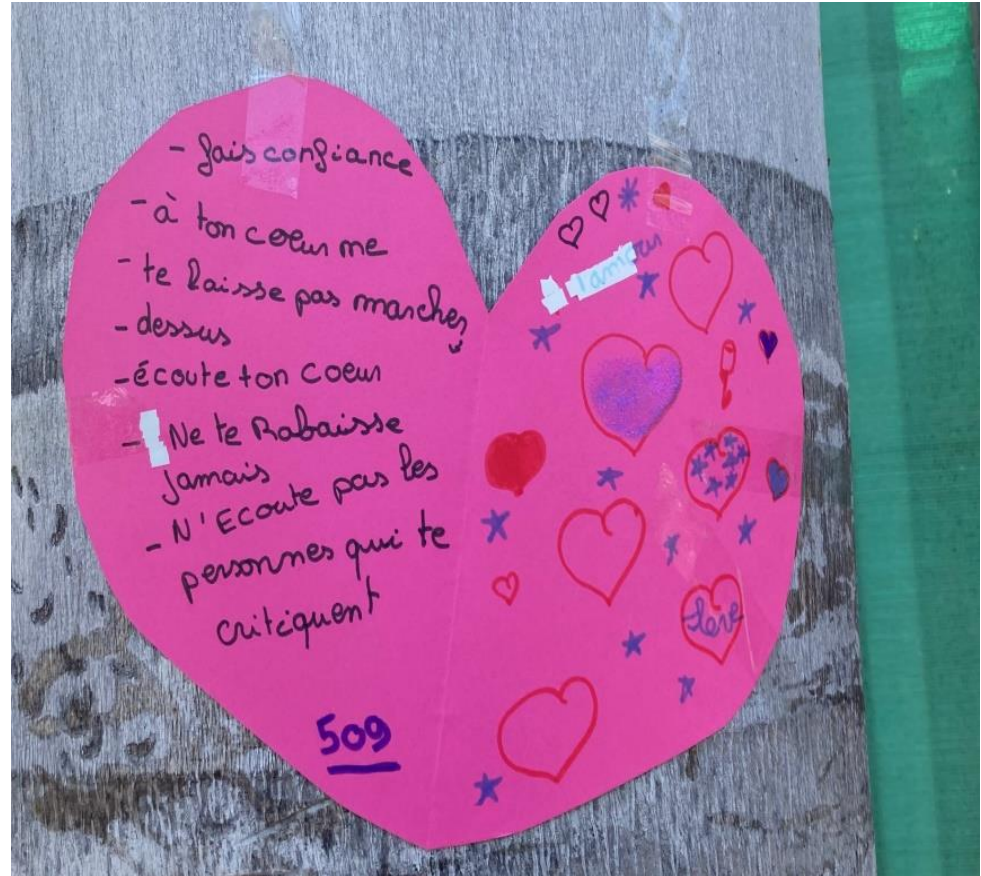 - fais confiance
- à ton coeur me
- te laisse pas marcher
- dessus
- écoute ton coeur
- Ne te Rabaisse
jamais
- N'Ecoute pas les
personnes qui te
critiquent
509
love